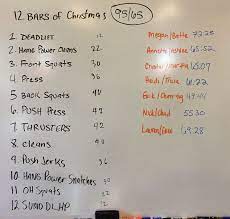 12 BARS of Christmas 95/65
1. DEADLIFT 12
2. HANG POWER Cleans 22
3. Front Squats 30
4. Press 36
5. BACK Squats 40
6. PUSH Press 42
7. THRUSTERS 42
8. Cleans 40
9. Push Jerks 36
10. HANG POWER Snatches 30
11. OH Squats 22
12. SUMO DL HP 12
Megan/Bette 72:25
65:52
65:07
61:22
49:44
Nick/Chad 55:30
69:28